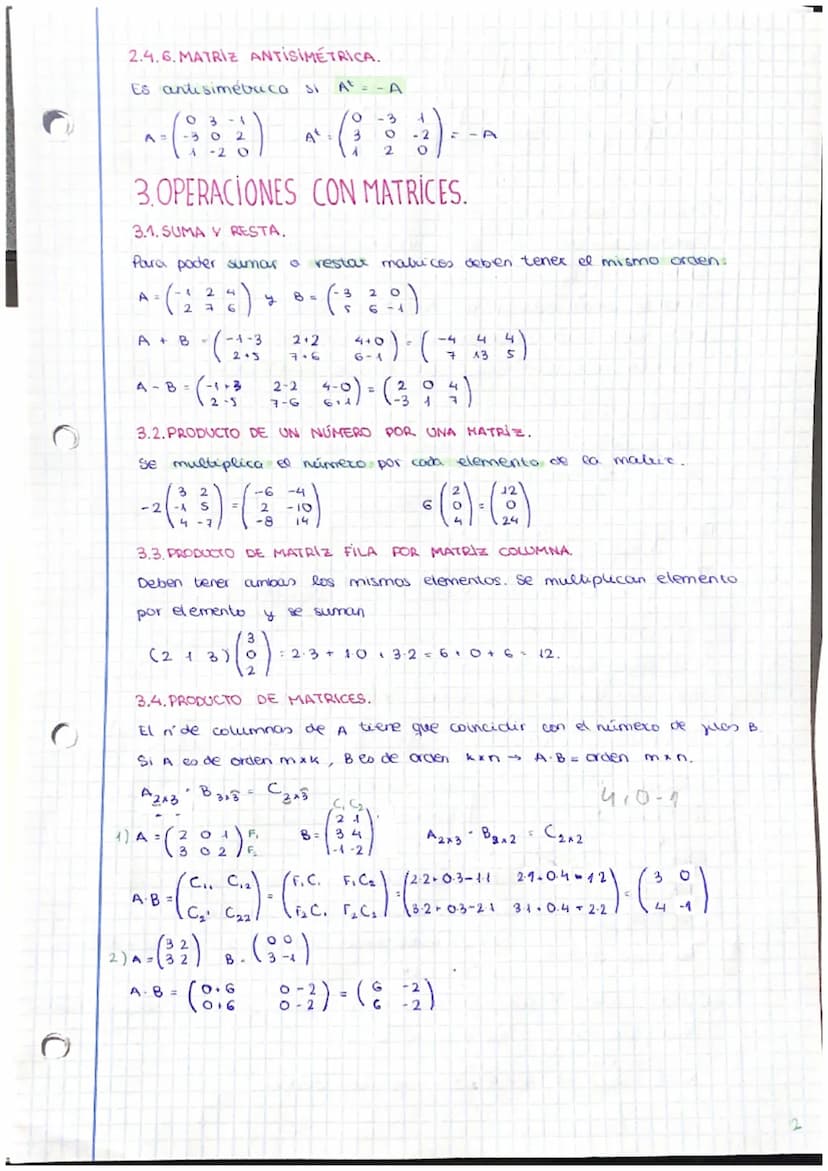 2.4.6. MATRIZ ANTISIMÉTRICA.
Es antisimétrica si Aᵗ = -A
A = (0 3 -1 / -3 0 2 / 1 -2 0) Aᵗ = (0 -3 1 / 3 0 -2 / 1 2 0) = -A
3. OPERACIONES CON MATRICES.
3.1. SUMA Y RESTA.
Para poder sumar o restar matrices deben tener el mismo orden:
A = (-1 2 4 / 2 7 6) y B = (-3 2 0 / 5 6 -1)
A + B = (-1-3 2+2 4+0 / 2+5 7+6 6-1) = (-4 4 4 / 7 13 5)
A - B = (-1+3 2-2 4-0 / 2-5 7-6 6+1) = (2 0 4 / -3 1 7)
3.2. PRODUCTO DE UN NÚMERO POR UNA MATRIZ.
Se multiplica el número por cada elemento de la matriz.
-2 (3 2 / -1 5 / 4 -7) = (-6 -4 / 2 -10 / -8 14) 6 (2 / 0 / 4) = (12 / 0 / 24)
3.3. PRODUCTO DE MATRIZ FILA POR MATRIZ COLUMNA.
Deben tener ambas los mismos elementos. Se multiplican elemento
por elemento y se suman
(2 1 3) (3 / 0 / 2) = 2·3 + 1·0 + 3·2 = 6 + 0 + 6 = 12.
3.4. PRODUCTO DE MATRICES.
El nº de columnas de A tiene que coincidir con el número de filas B.
Si A es de orden m×k, B es de orden k×n → A·B = orden m×n.
A₂ₓ₃ · B₃ₓ₅ = C₂ₓ₅
4,0-1
C₁ C₂
1) A = (2 0 1 / 3 0 2) F₁ F₂ B = (2 1 / 3 4 / -1 -2) A₂ₓ₃ · B₃ₓ₂ = C₂ₓ₂
A·B = (C₁₁ C₁₂ / C₂₁ C₂₂) = (F₁C₁ F₁C₂ / F₂C₁ F₂C₂) = (2·2+0·3-1·1 2·1+0·4-1·2 / 3·2+0·3-2·1 3·1+0·4-2·2) = (3 0 / 4 -1)
2) A = (3 2 / 3 2) B = (0 0 / 3 -1)
A·B = (0+6 0-2 / 0+6 0-2) = (6 -2 / 6 -2)
2